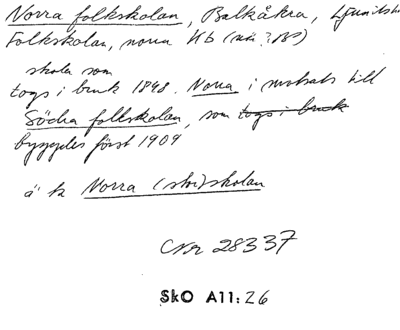 Norra folkskolan, Balkåkra, Ljunits h
Folkskolan, norra Hb (
skola som
togs i bruk 1898. Norra i motsats till
Södra folkskolan, som togs i bruk
byggdes först 1909
ä k Norra (stor)skolan
CNr 28337
SkO A11:26